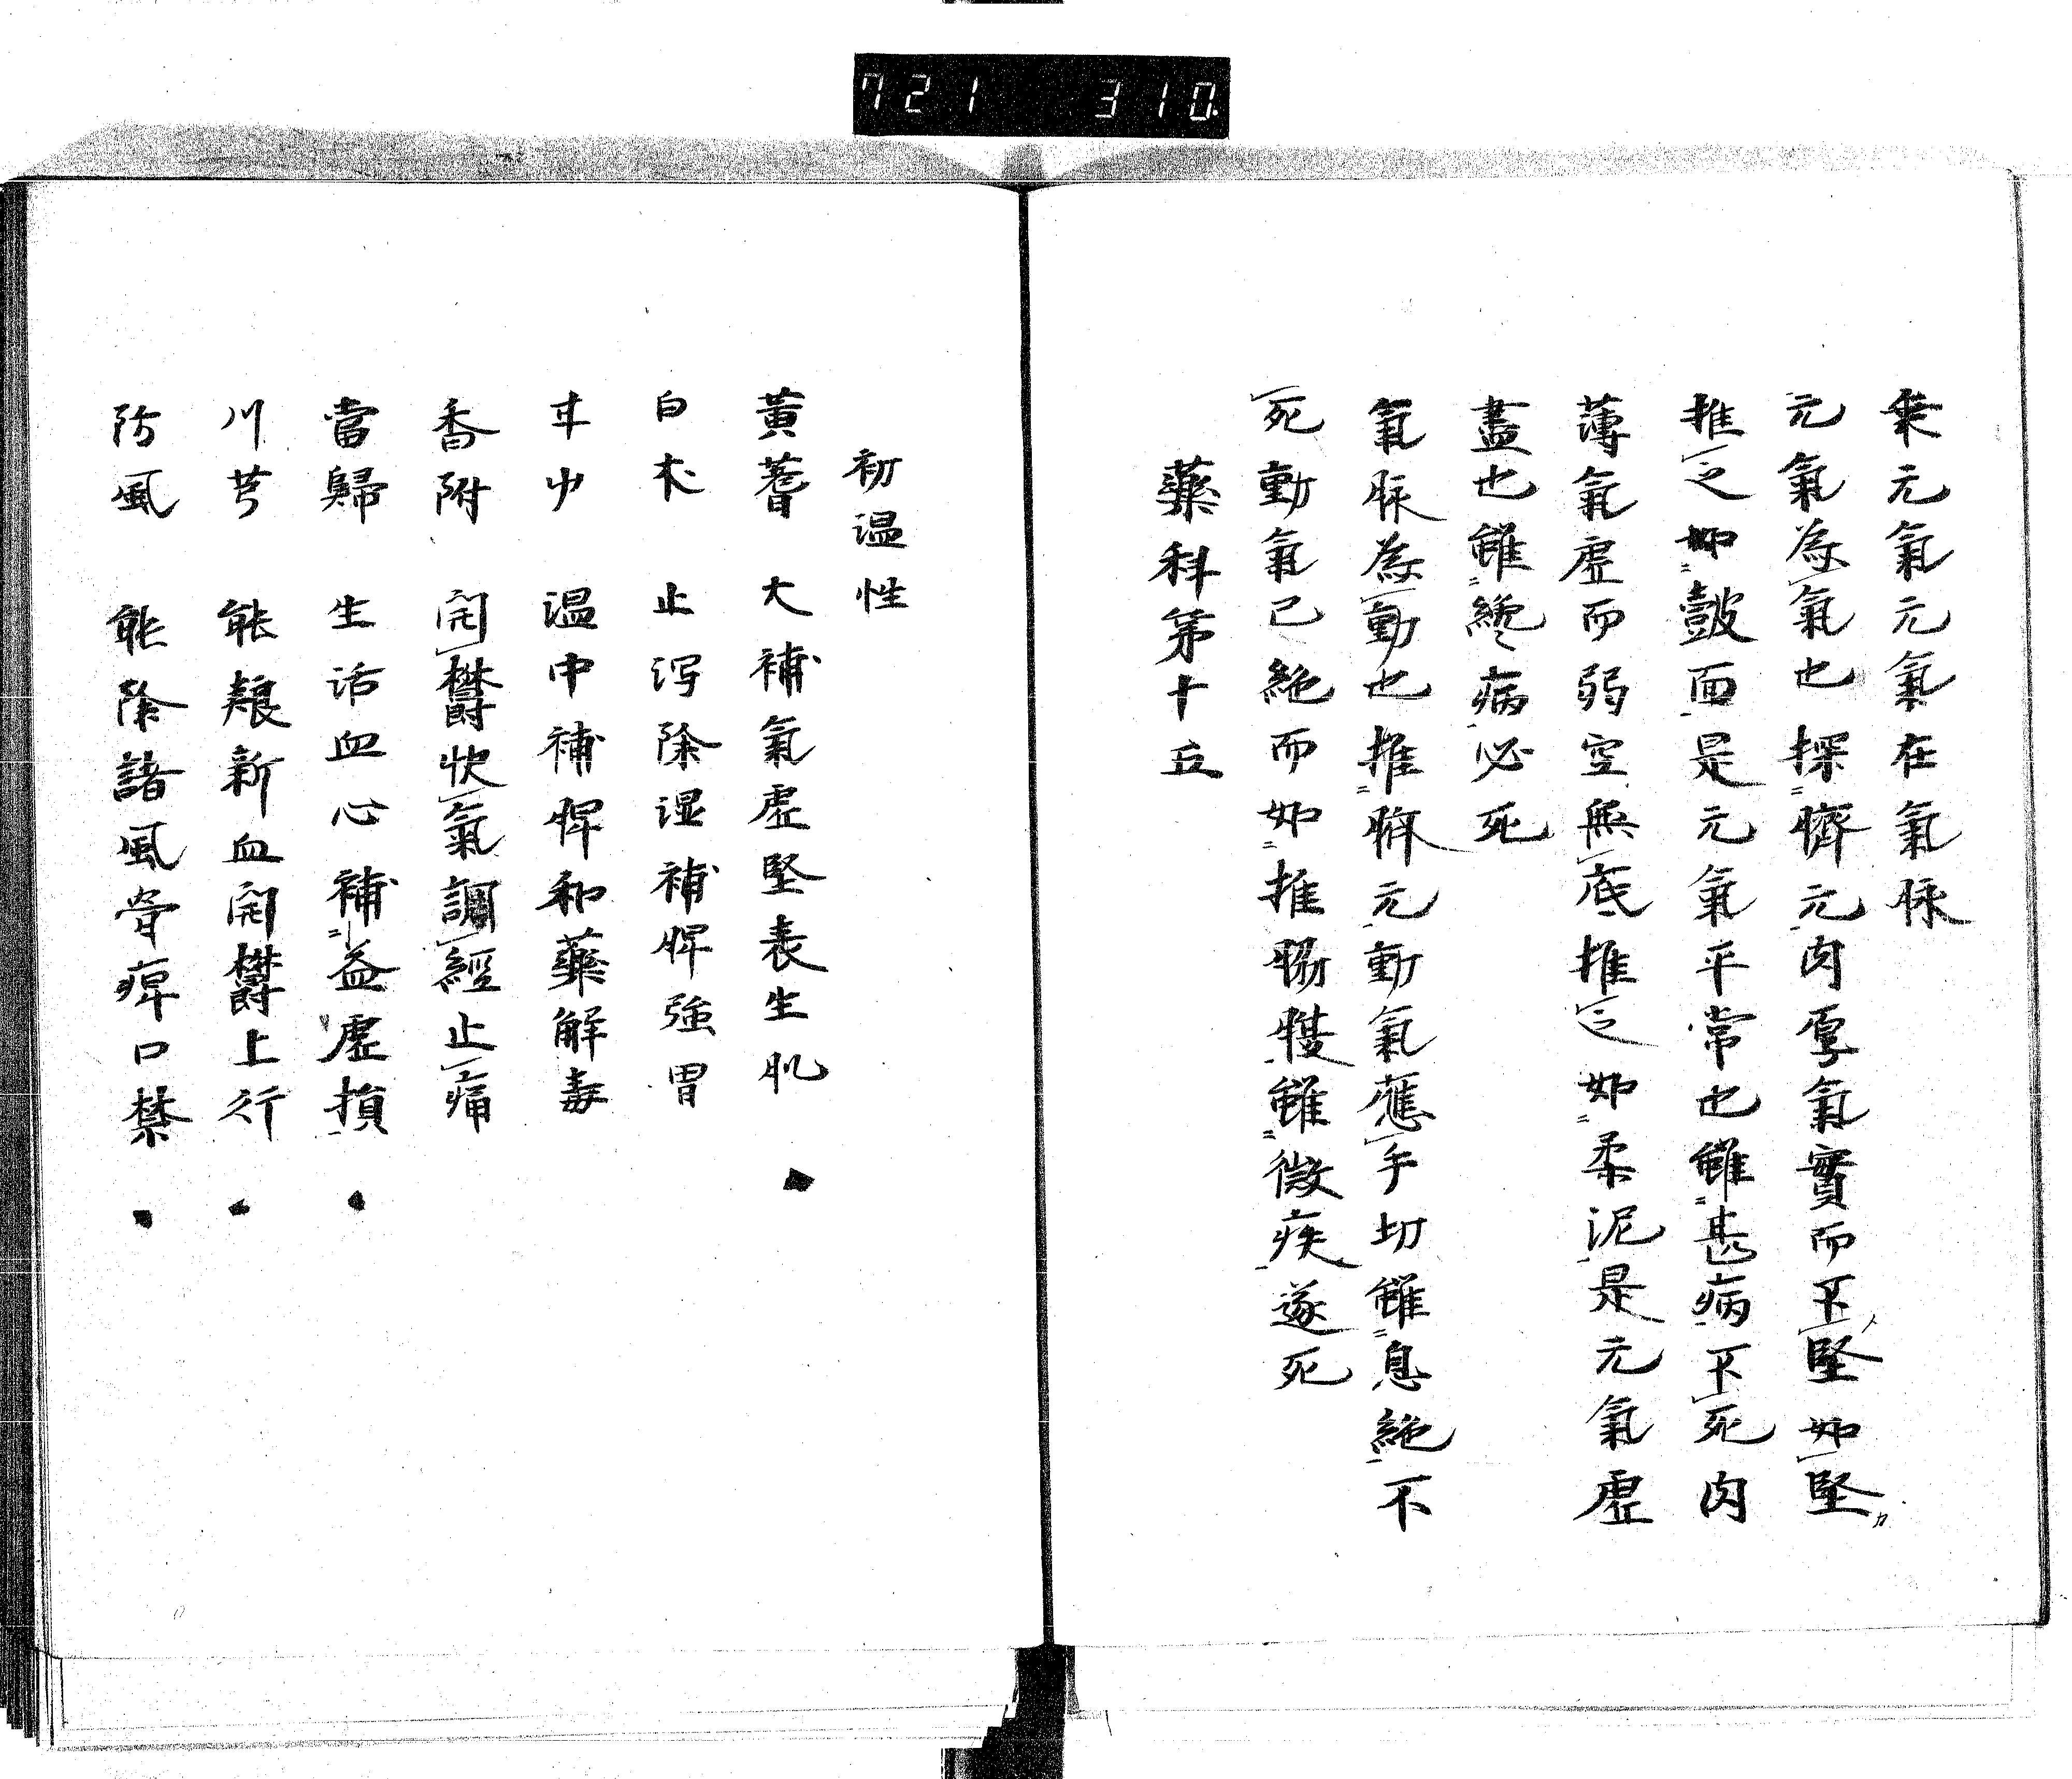 721 310.
乗元氣元氣在氣脉
元氣為氣也探臍元肉厚氣實而不堅如堅
推之如皷面是元氣平常也雖甚病不死肉
薄氣虚而弱空無底推之如柔泥是元氣虚
盡也雖纔病必死
氣脉為動也推臍元動氣應手切雖息絶不
死動氣已絶而如推腸雖微疾遂死
藥科第十五
初温性
黄蓍 大補氣虚堅表生肌
白朮 止泻除湿補脾強胃
甘中 温中補脾和藥解毒
香附 開欝快氣調經止痛
當歸 生活血心補益虚損
川芎 能新血開欝上行
防風 能除諸風骨痺口禁